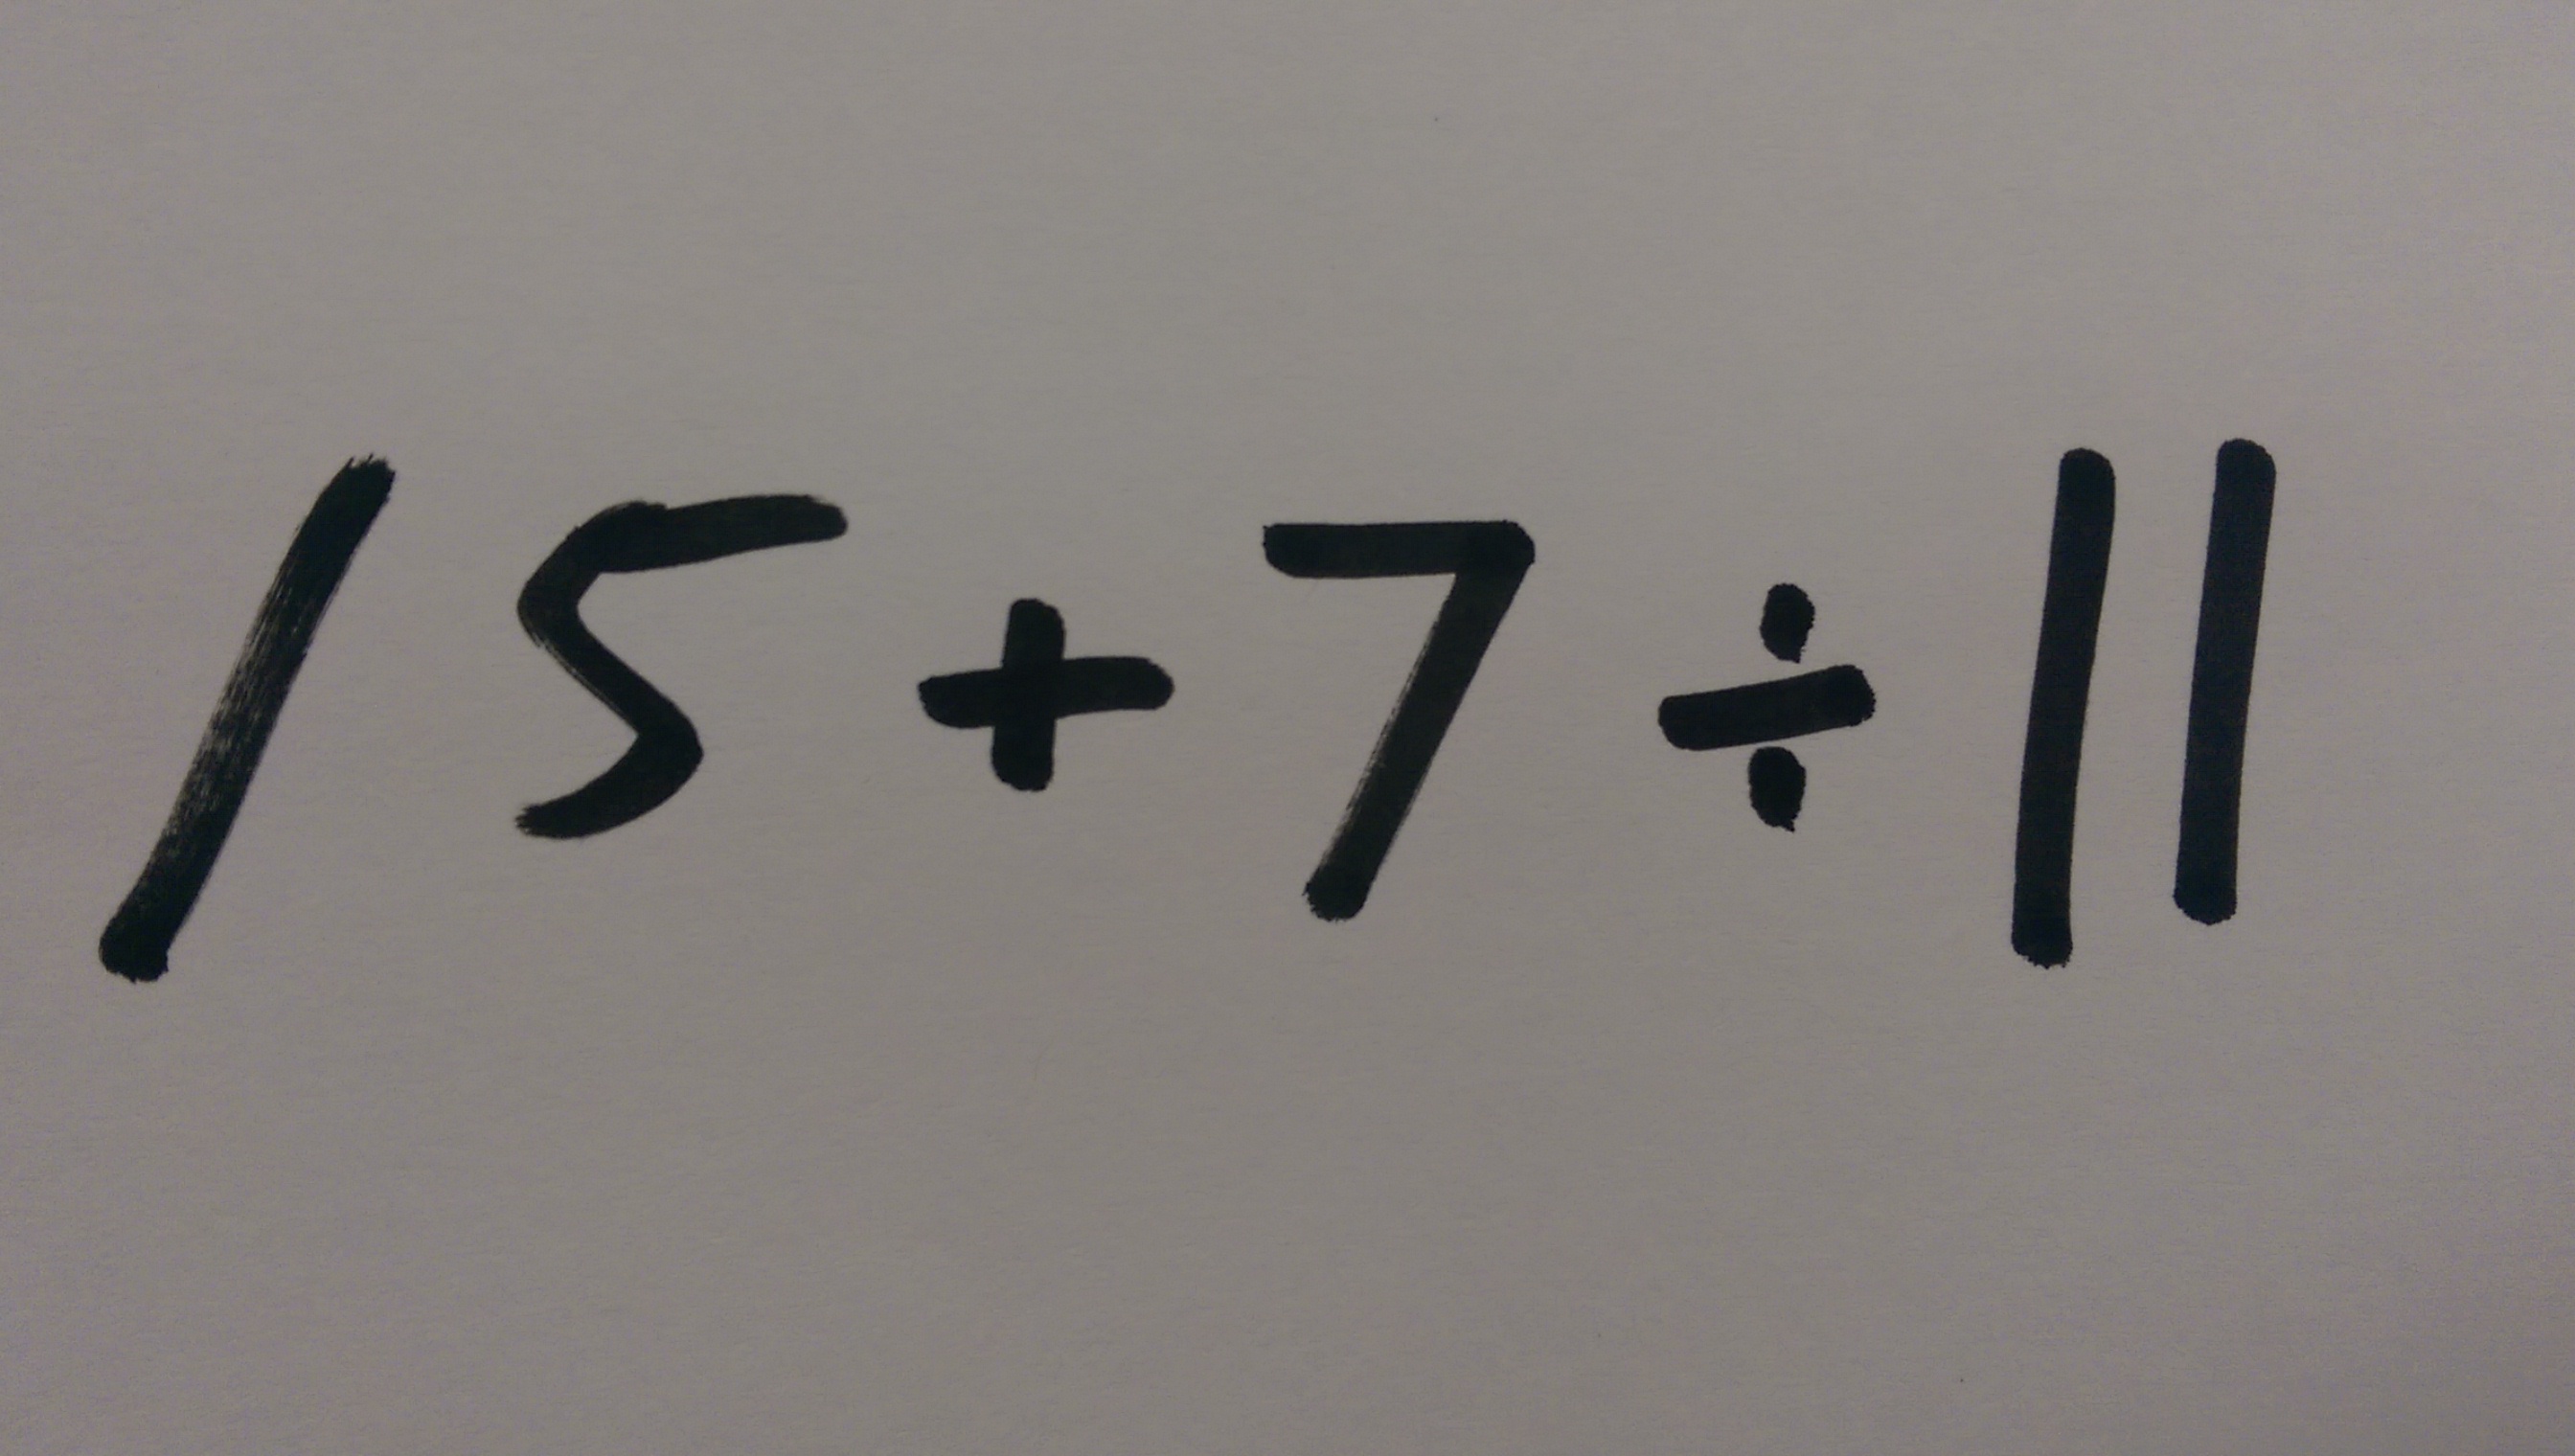 15+7÷11